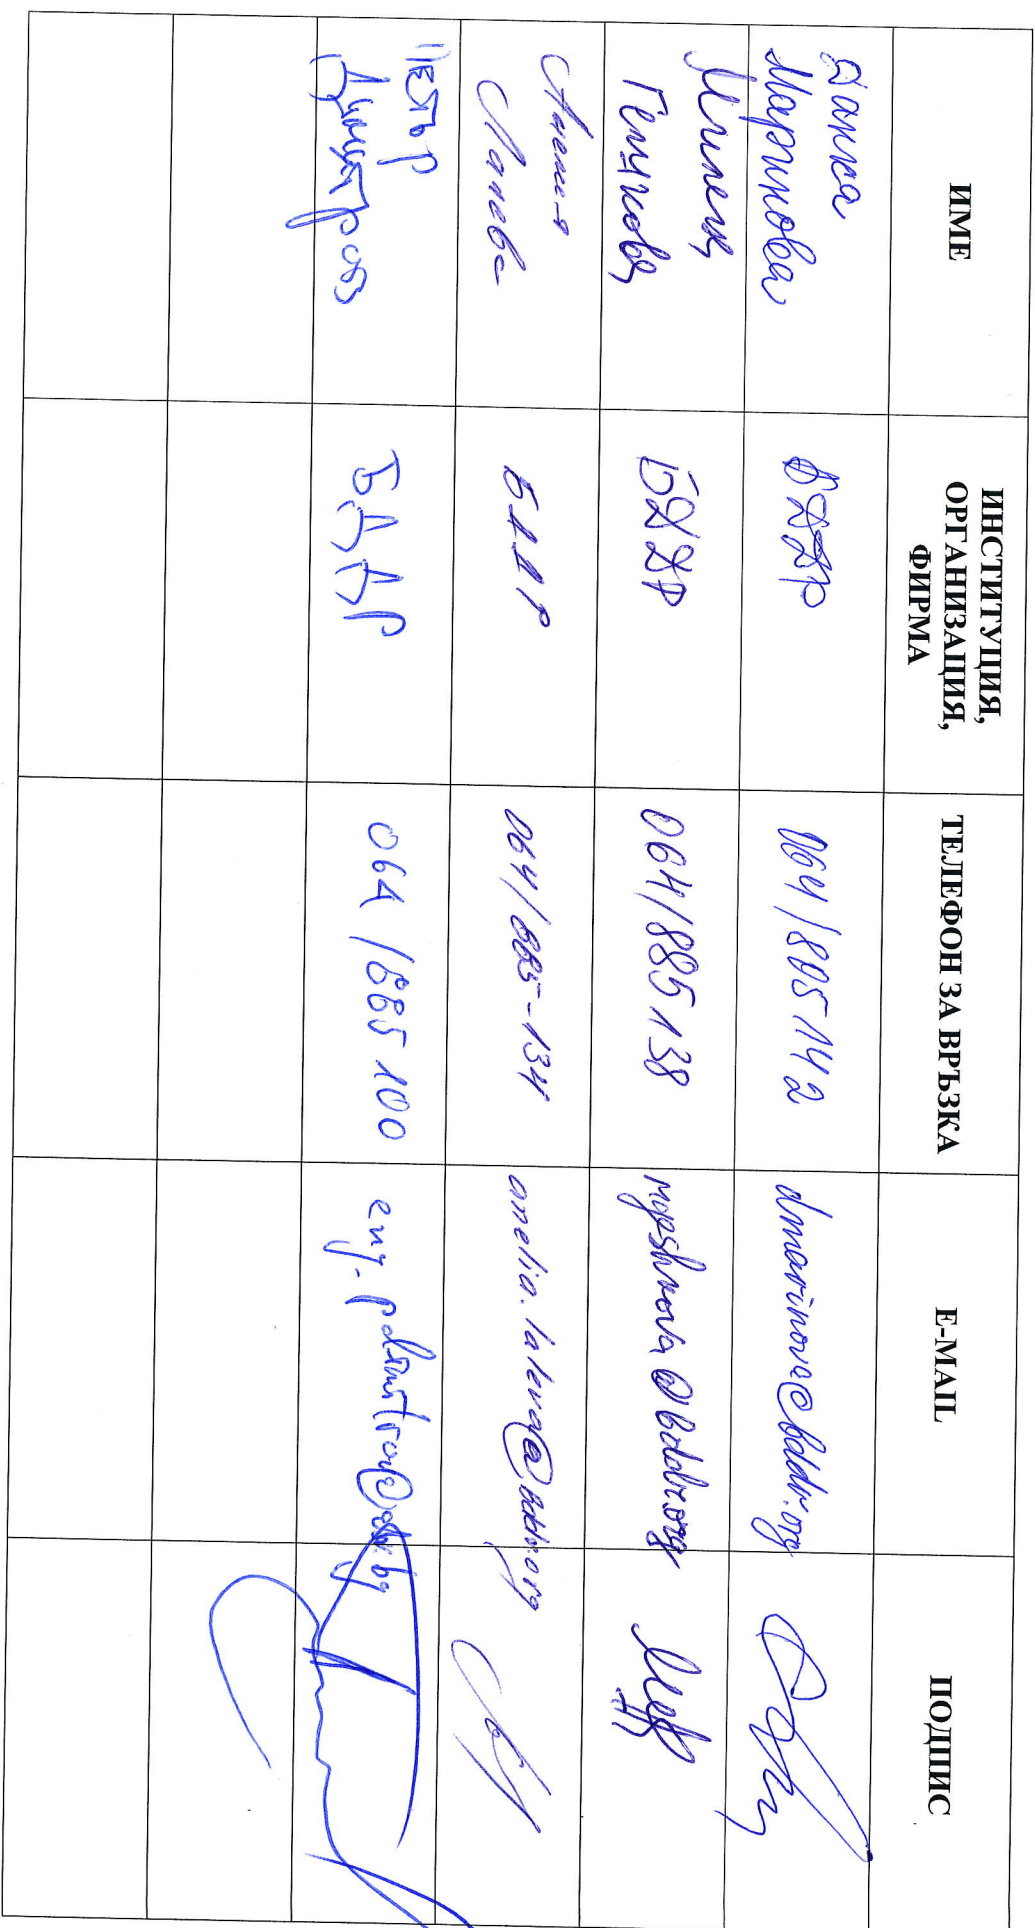 ИМЕ
ИНСТИТУЦИЯ,
ОРГАНИЗАЦИЯ,
ФИРМА
ТЕЛЕФОН ЗА ВРЪЗКА
E-MAIL
ПОДПИС
Данка
Маринова
БДДР
064/805142
dmarinova@bddr.org
Милена
БДДР
064/885138
Анелия
Лалева
БДДР
064/885-134
anelia.laleva@bddr.org
Петър
Димитров
БДДР
064/885100